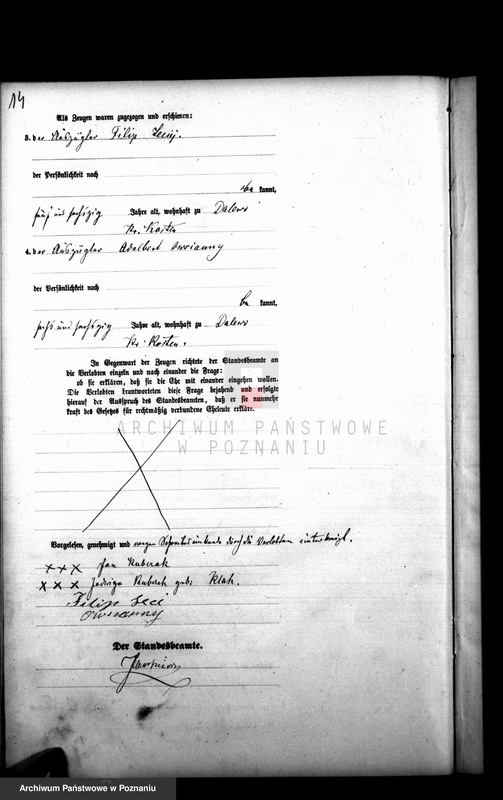 14
Als Zeugen waren zugezogen und erschienen:
3. der Auszügler Filip
der Persönlichkeit nach
be kannt,
fünf und sechszig Jahre alt, wohnhaft zu Dalewo
Kr. Kosten
4. der Auszügler Adalbert
der Persönlichkeit nach
be kannt,
sechs und sechszig Jahre alt, wohnhaft zu Dalewo
Kr. Kosten.
In Gegenwart der Zeugen richtete der Standesbeamte an
die Verlobten einzeln und nach einander die Frage:
ob sie erklären, daß sie die Ehe mit einander eingehen wollen.
Die Verlobten beantworteten diese Frage bejahend und erfolgte
hierauf der Ausspruch des Standesbeamten, daß er sie nunmehr
kraft des Gesetzes für rechtmäßig verbundene Eheleute erkläre.
ARCHIWUM PAŃSTWOWE
W POZNANIU
Vorgelesen, genehmigt und wegen durch die Verlobten unterkreuzt.
+++ Jan Kubczak
+++ Jadwiga Kubczak geb. Klak.
Filip
Der Standesbeamte.
Archiwum Państwowe w Poznaniu